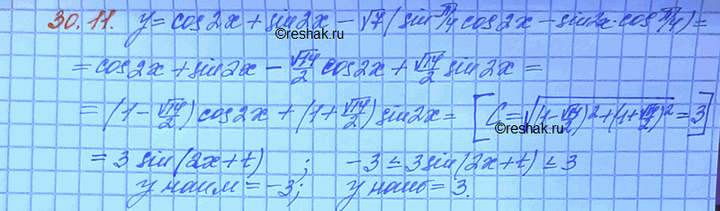 30.11. y = cos2x + sin2x - √7(sin π/4 cos2x - sin2x · cos π/4) =
©reshak.ru
= cos2x + sin2x - √14/2 cos2x + √14/2 sin2x =
= (1 - √14/2) cos2x + (1 + √14/2) sin2x = [C = √((1 - √14/2)² + (1 + √14/2)²) = 3]
©reshak.ru
= 3 sin(2x + t) ; -3 ≤ 3 sin(2x + t) ≤ 3
y наим = -3; y наиб = 3.